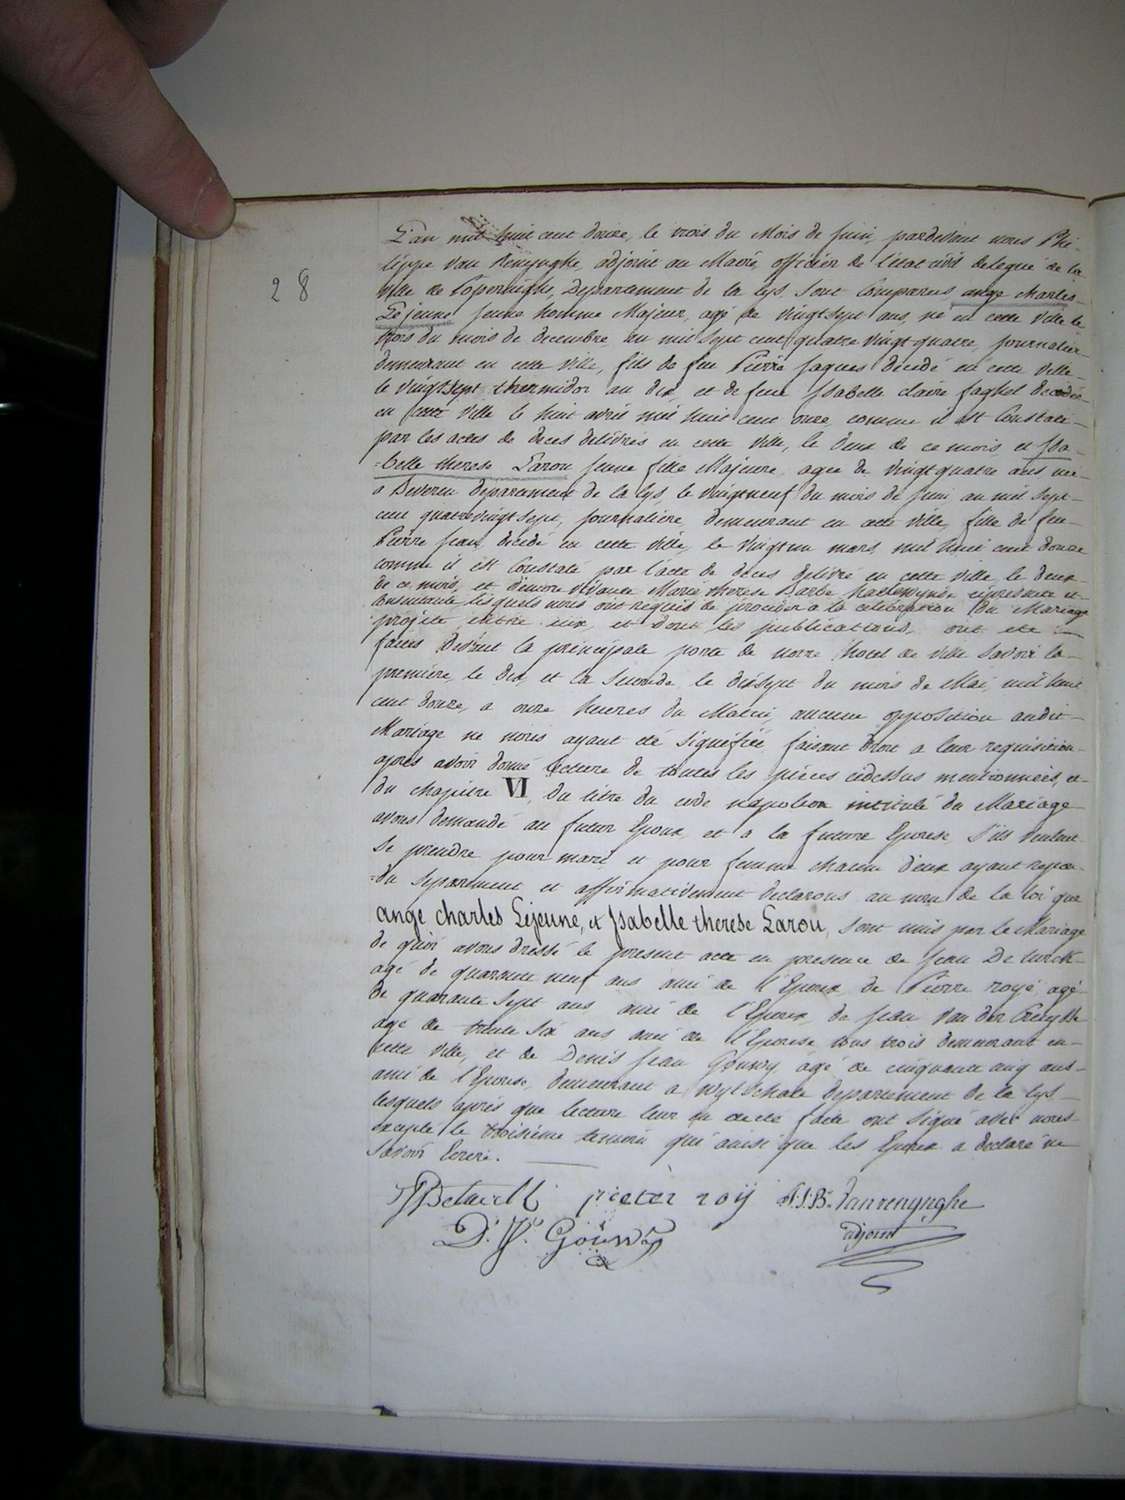 28
L'an mil huit cent douze, le trois du Mois de Juin, pardevant nous Phi-
lippe Van Renÿnghe, adjoint au Maire, officier de l'état civil delegué de la
ville de Poperinghe, Departement de la Lys, sont comparus ange Charles
Lejeune jeune homme Majeur, agé de vingtsept ans, né en cette ville le
trois du mois de decembre an mil sept cent quatre vingt quatre, journalier
demeurant en cette ville, fils de feu Pierre Jaques décédé en cette ville
le vingtsept thermidor an dix, et de feue Isabelle claire faghel decedée
en cette ville le huit avril mil huit cent onze, comme il est constaté
par les actes de deces délivrés en cette ville, le deux de ce mois et Isa-
=belle therese Larou jeune fille Majeure, agée de vingtquatre ans née
a departement de la Lys, le vingtneuf du mois de Juin an mil sept
cent quatrevingt sept, journalière, demeurant en cette ville, fille de feu
Pierre Jean, décédé en cette ville, le vingt un mars mil huit cent douze
comme il est constaté par l'acte de deces délivré en cette ville le deux
de ce mois, et d'encore vivante Marie therese Barbe cipresente et
consentante, lesquels nous ont requis de proceder a la celebration du Mariage
projeté entre eux, et dont les publications ont été
faites devant la principale porte de notre hotel de ville savoir la
premiere, le dix, et la seconde le dixsept du mois de Mai, mil huit
cent douze, a onze heures du Matin, aucune opposition audit
Mariage ne nous ayant été signéfiée, faisant droit a leur requisition
après avoir donné lecture de toutes les pièces cidessus mentionnées, et
du chapitre VI, du titre du code napoleon intitulé du Mariage
avons demandé au futur Epoux, et a la future Epouse s'ils veulent
se prendre pour mari et pour femme chacun d'eux ayant repon-
=du séparément et affirmativement declarons au nom de la loi que
ange charles Lejeune, et Isabelle therese Larou, sont unis par le Mariage
de quoi avons dressé le present acte en presence de Jean De
agé de quarante neuf ans ami de l'Epoux de Pierre royé agé
de quarante sept ans ami de l'Epoux, de Jean Van der
agé de trente six ans ami de l'Epouse tous trois demeurant en
cette ville, et de Denis Jean Gouwy agé de cinquante cinq ans
ami de l'Epouse, demeurant a departement de la Lys
lesquels après que lecture leur en a été faite ont signé avec nous
excepté le troisième temoin qui ainsi que les Epoux a declaré ne
savoir Ecrire.
pieter roÿ Vanrenynghe
D. J. Gouwÿ adjoint